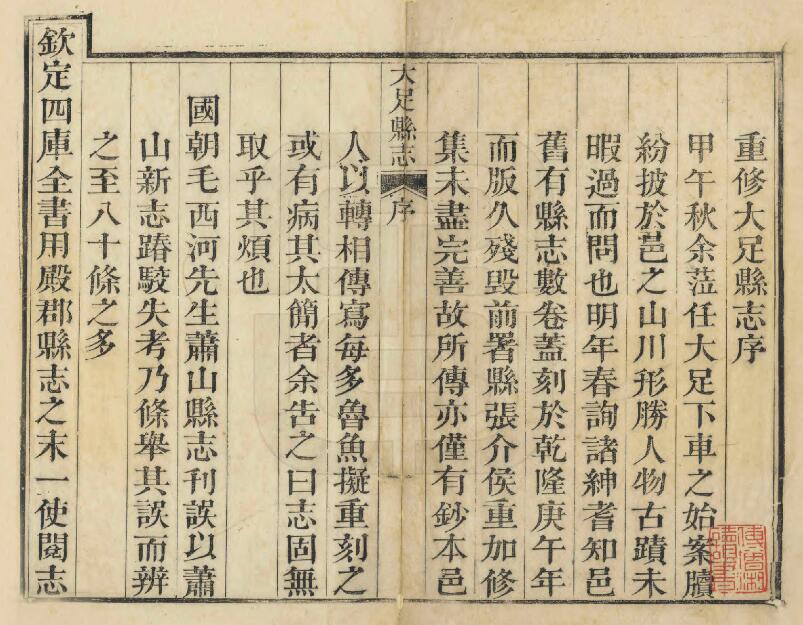 重修大足縣志序
甲午秋余蒞任大足下車之始案牘
紛披於邑之山川形勝人物古蹟未
暇過而問也明年春詢諸紳耆知邑
舊有縣志數卷蓋刻於乾隆庚午年
而版久殘毀前署縣張介侯重加修
集未盡完善故所傳亦僅有鈔本邑
大足縣志 序
人以轉相傳寫每多魯魚擬重刻之
或有病其太簡者余告之曰志固無
取乎其煩也
國朝毛西河先生蕭山縣志刊誤以蕭
山新志踳駮失考乃條舉其誤而辨
之至八十條之多
欽定四庫全書用殿郡縣志之末一使閱志